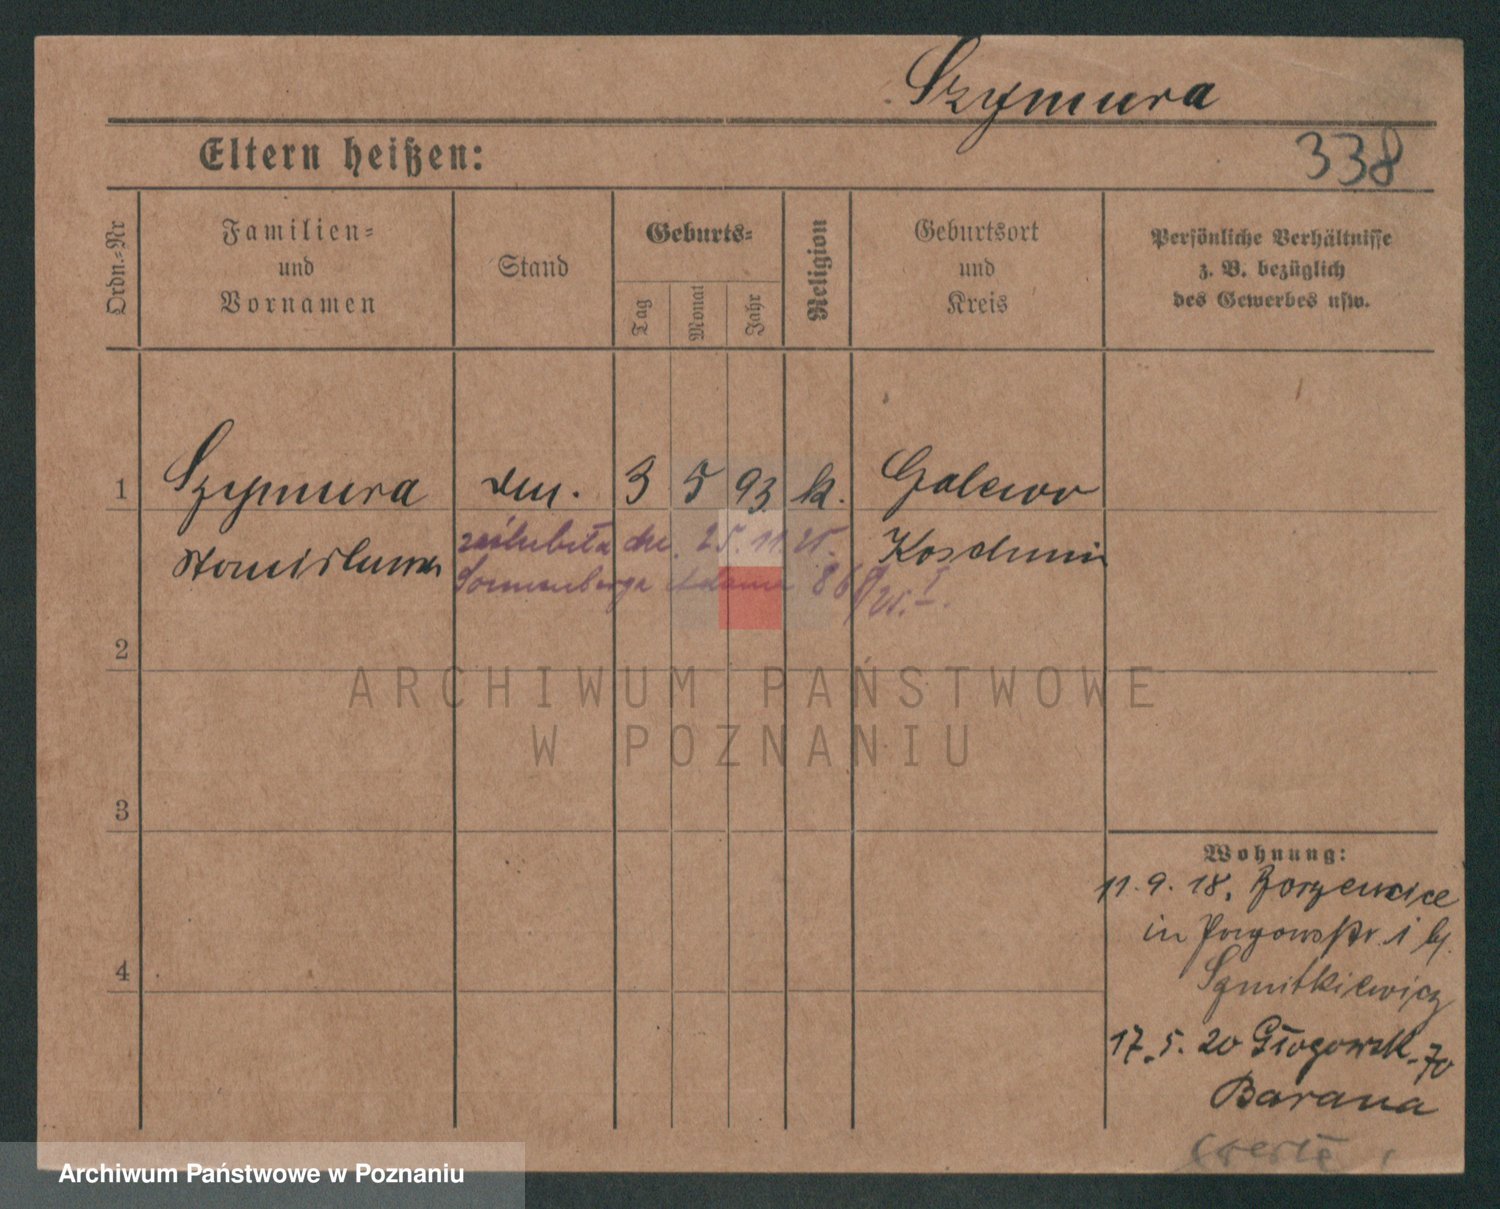 Szymura
338
Eltern heißen:
Ordn.-Nr
Familien-
und
Vornamen
Stand
Geburts-
Tag
Monat
Jahr
Religion
Geburtsort
und
Kreis
Persönliche Verhältnisse
z. B. bezüglich
des Gewerbes usw.
1 Szymura 3 5 93 k. Galewo
Stanisława Koschmin
zaślubiła dn. 25.11.25.
Sonnenberga Adama
2
3
4
ARCHIWUM PAŃSTWOWE
W POZNANIU
Wohnung:
11. 9. 18. Borzewice
in
17. 5. 20 Głogowsk. 70
Barana
Archiwum Państwowe w Poznaniu